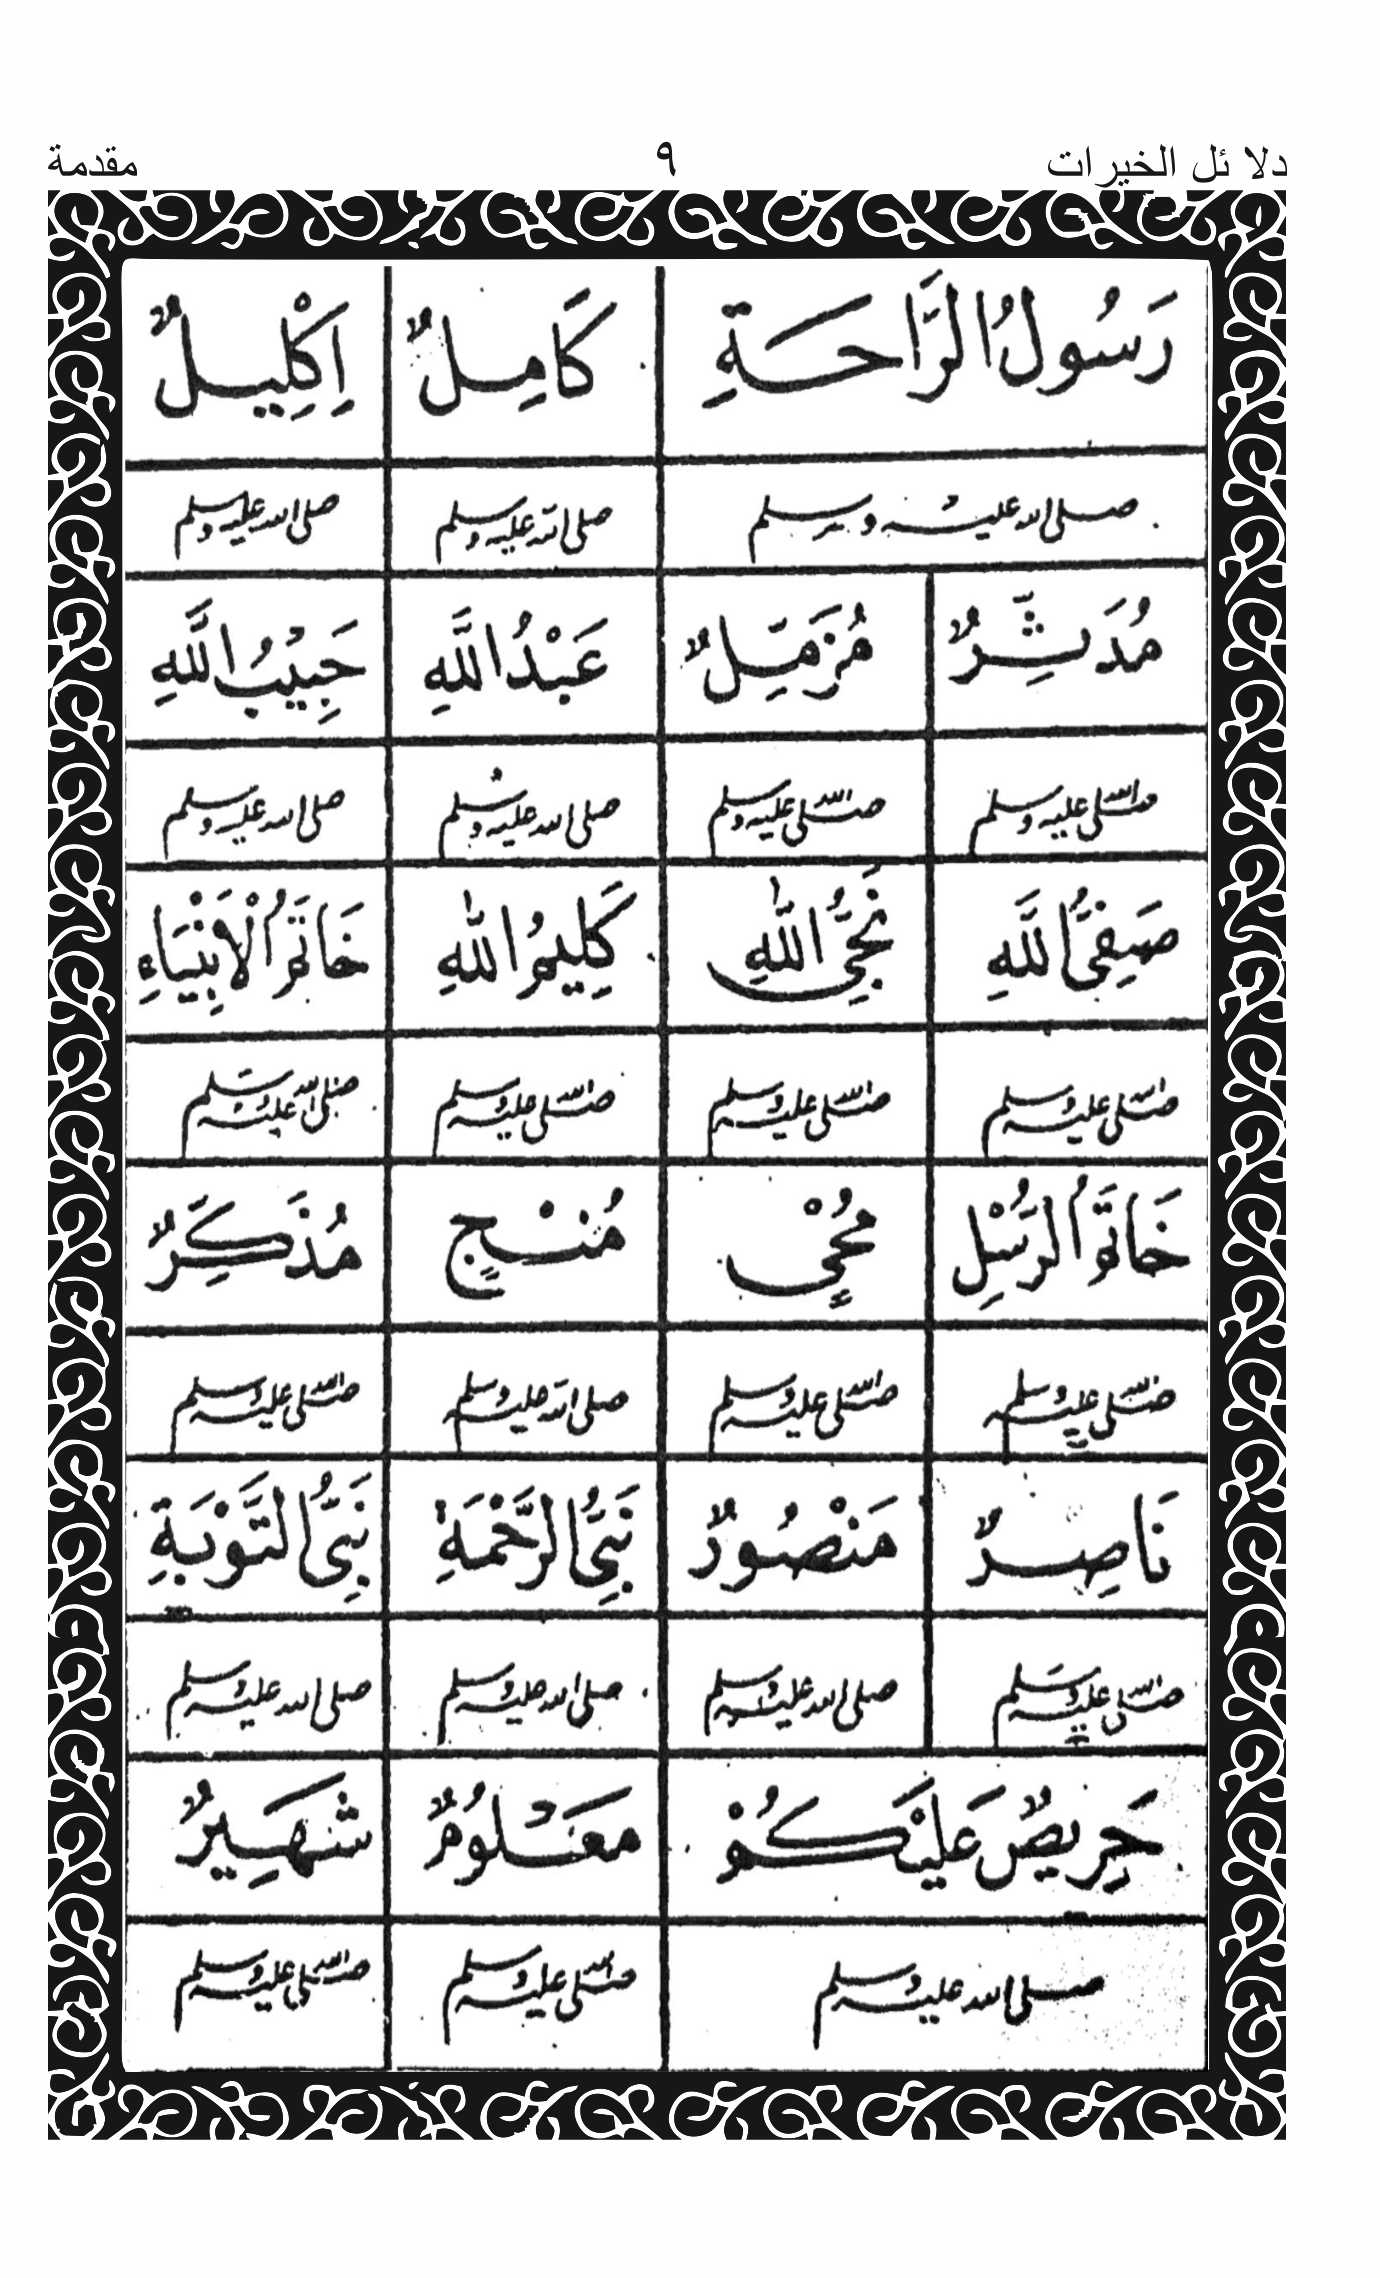 دلا ئل الخيرات ٩ مقدمة
رَسُولُ الرَّاحَةِ كَامِلٌ اِكْلِيلٌ
صلى الله عليه وسلم صلى الله عليه وسلم صلى الله عليه وسلم
مُدَثِّرٌ مُزَمِّلٌ عَبْدُ اللَّهِ حَبِيْبُ اللَّهِ
صلى الله عليه وسلم صلى الله عليه وسلم صلى الله عليه وسلم صلى الله عليه وسلم
صَفِىُّ اللَّهِ نَجِىُّ اللّٰهِ كَلِيمُ اللّٰهِ خَاتَمُ الْاَنْبِيَاءِ
صلى الله عليه وسلم صلى الله عليه وسلم صلى الله عليه وسلم صلى الله عليه وسلم
خَاتَمُ الرُّسُلِ مُحْيٍ مُنْجٍ مُذَكِّرٌ
صلى الله عليه وسلم صلى الله عليه وسلم صلى الله عليه وسلم صلى الله عليه وسلم
نَاصِرٌ مَنْصُورٌ نَبِىُّ الرَّحْمَةِ نَبِىُّ التَّوْبَةِ
صلى الله عليه وسلم صلى الله عليه وسلم صلى الله عليه وسلم صلى الله عليه وسلم
حَرِيصٌ عَلَيْكُمْ مَعْلُومٌ شَهِيرٌ
صلى الله عليه وسلم صلى الله عليه وسلم صلى الله عليه وسلم